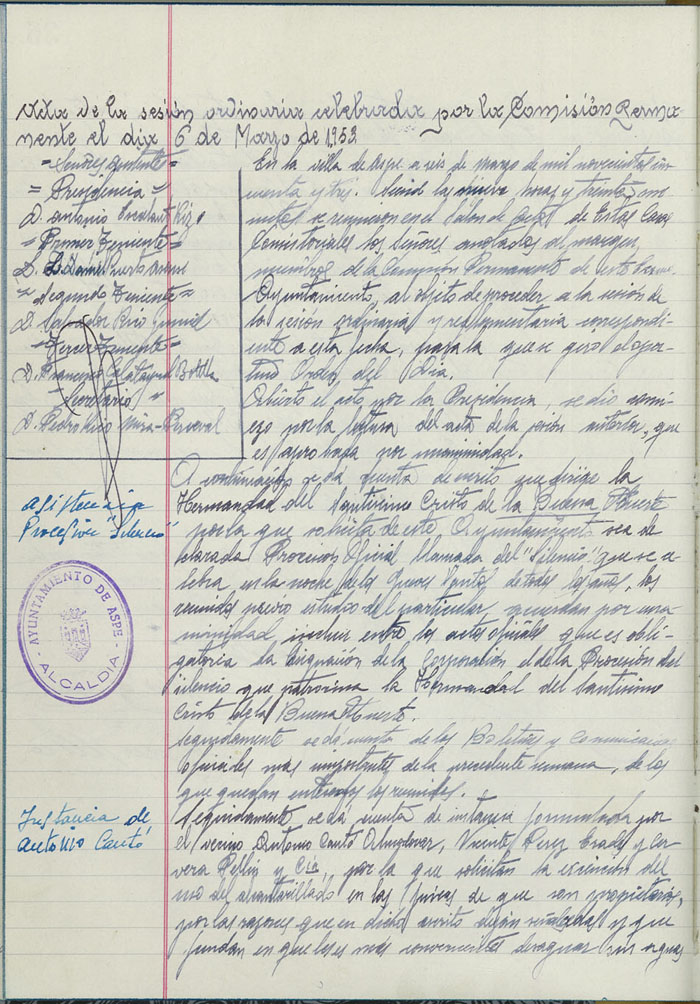 Acta de la sesión ordinaria celebrada por la Comisión Perma
nente el día 6 de Marzo de 1953
=Señores asistentes=
= Presidencia =
D. Antonio
=Primer Teniente=
D.
=Segundo Teniente=
D. Salvador Rico
=Tercer Teniente=
D. Francisco Calatayud Botella
Secretario =
D. Pedro Mira-Perceval
En la villa de Aspe a seis de marzo de mil novecientos cin
cuenta y tres. Siendo las nueve horas y treinta mi
nutos se reunieron en el Salón de actos de Estas Casas
Consistoriales los señores anotados al margen,
miembros de la Comisión Permanente de este
Ayuntamiento, al objeto de proceder a la sesión de
la sesión ordinaria y reglamentaria correspondi
ente a esta fecha, para la que se giró el opor-
tuno Orden del Día.
Abierto el acto por la Presidencia, se dio comi-
enzo por la lectura del acta de la sesión anterior, que
es aprobada por unanimidad.
A continuación se dá cuenta de escrito que dirige la
Hermandad del Santísimo Cristo de la Buena Muerte
por la que solicita de este Ayuntamiento sea de
clarada Procesión Oficial llamada del "Silencio" que se ce
lebra en la noche de los Jueves Santos de todos los años, los
reunidos previo estudio del particular, acuerdan por una-
nimidad incluir entre los actos oficiales que es obli-
gatoria la de la Corporación el de la Procesión del
silencio que patrocina la Hermandad del Santísimo
Cristo de la Buena Muerte.
Seguidamente se dá cuenta de los Boletines y comunicacion
oficiales más importantes de la precedente semana, de los
que quedan enterados los reunidos.
Seguidamente se dá cuenta de instancia formulada por
el vecino Antonio Cantó Almodovar, Vicente Perez y Cer
vera Pellin y Cía, por la que solicitan la exención del
uso del alcantarillado en las fincas de que son propietarios,
por las razones que en dicho escrito dejan señaladas y que
fundan en que les es más conveniente desaguar sus aguas
Asistencia
Procesión "Silencio"
AYUNTAMIENTO DE ASPE
ALCALDIA
Instancia de
Antonio Cantó